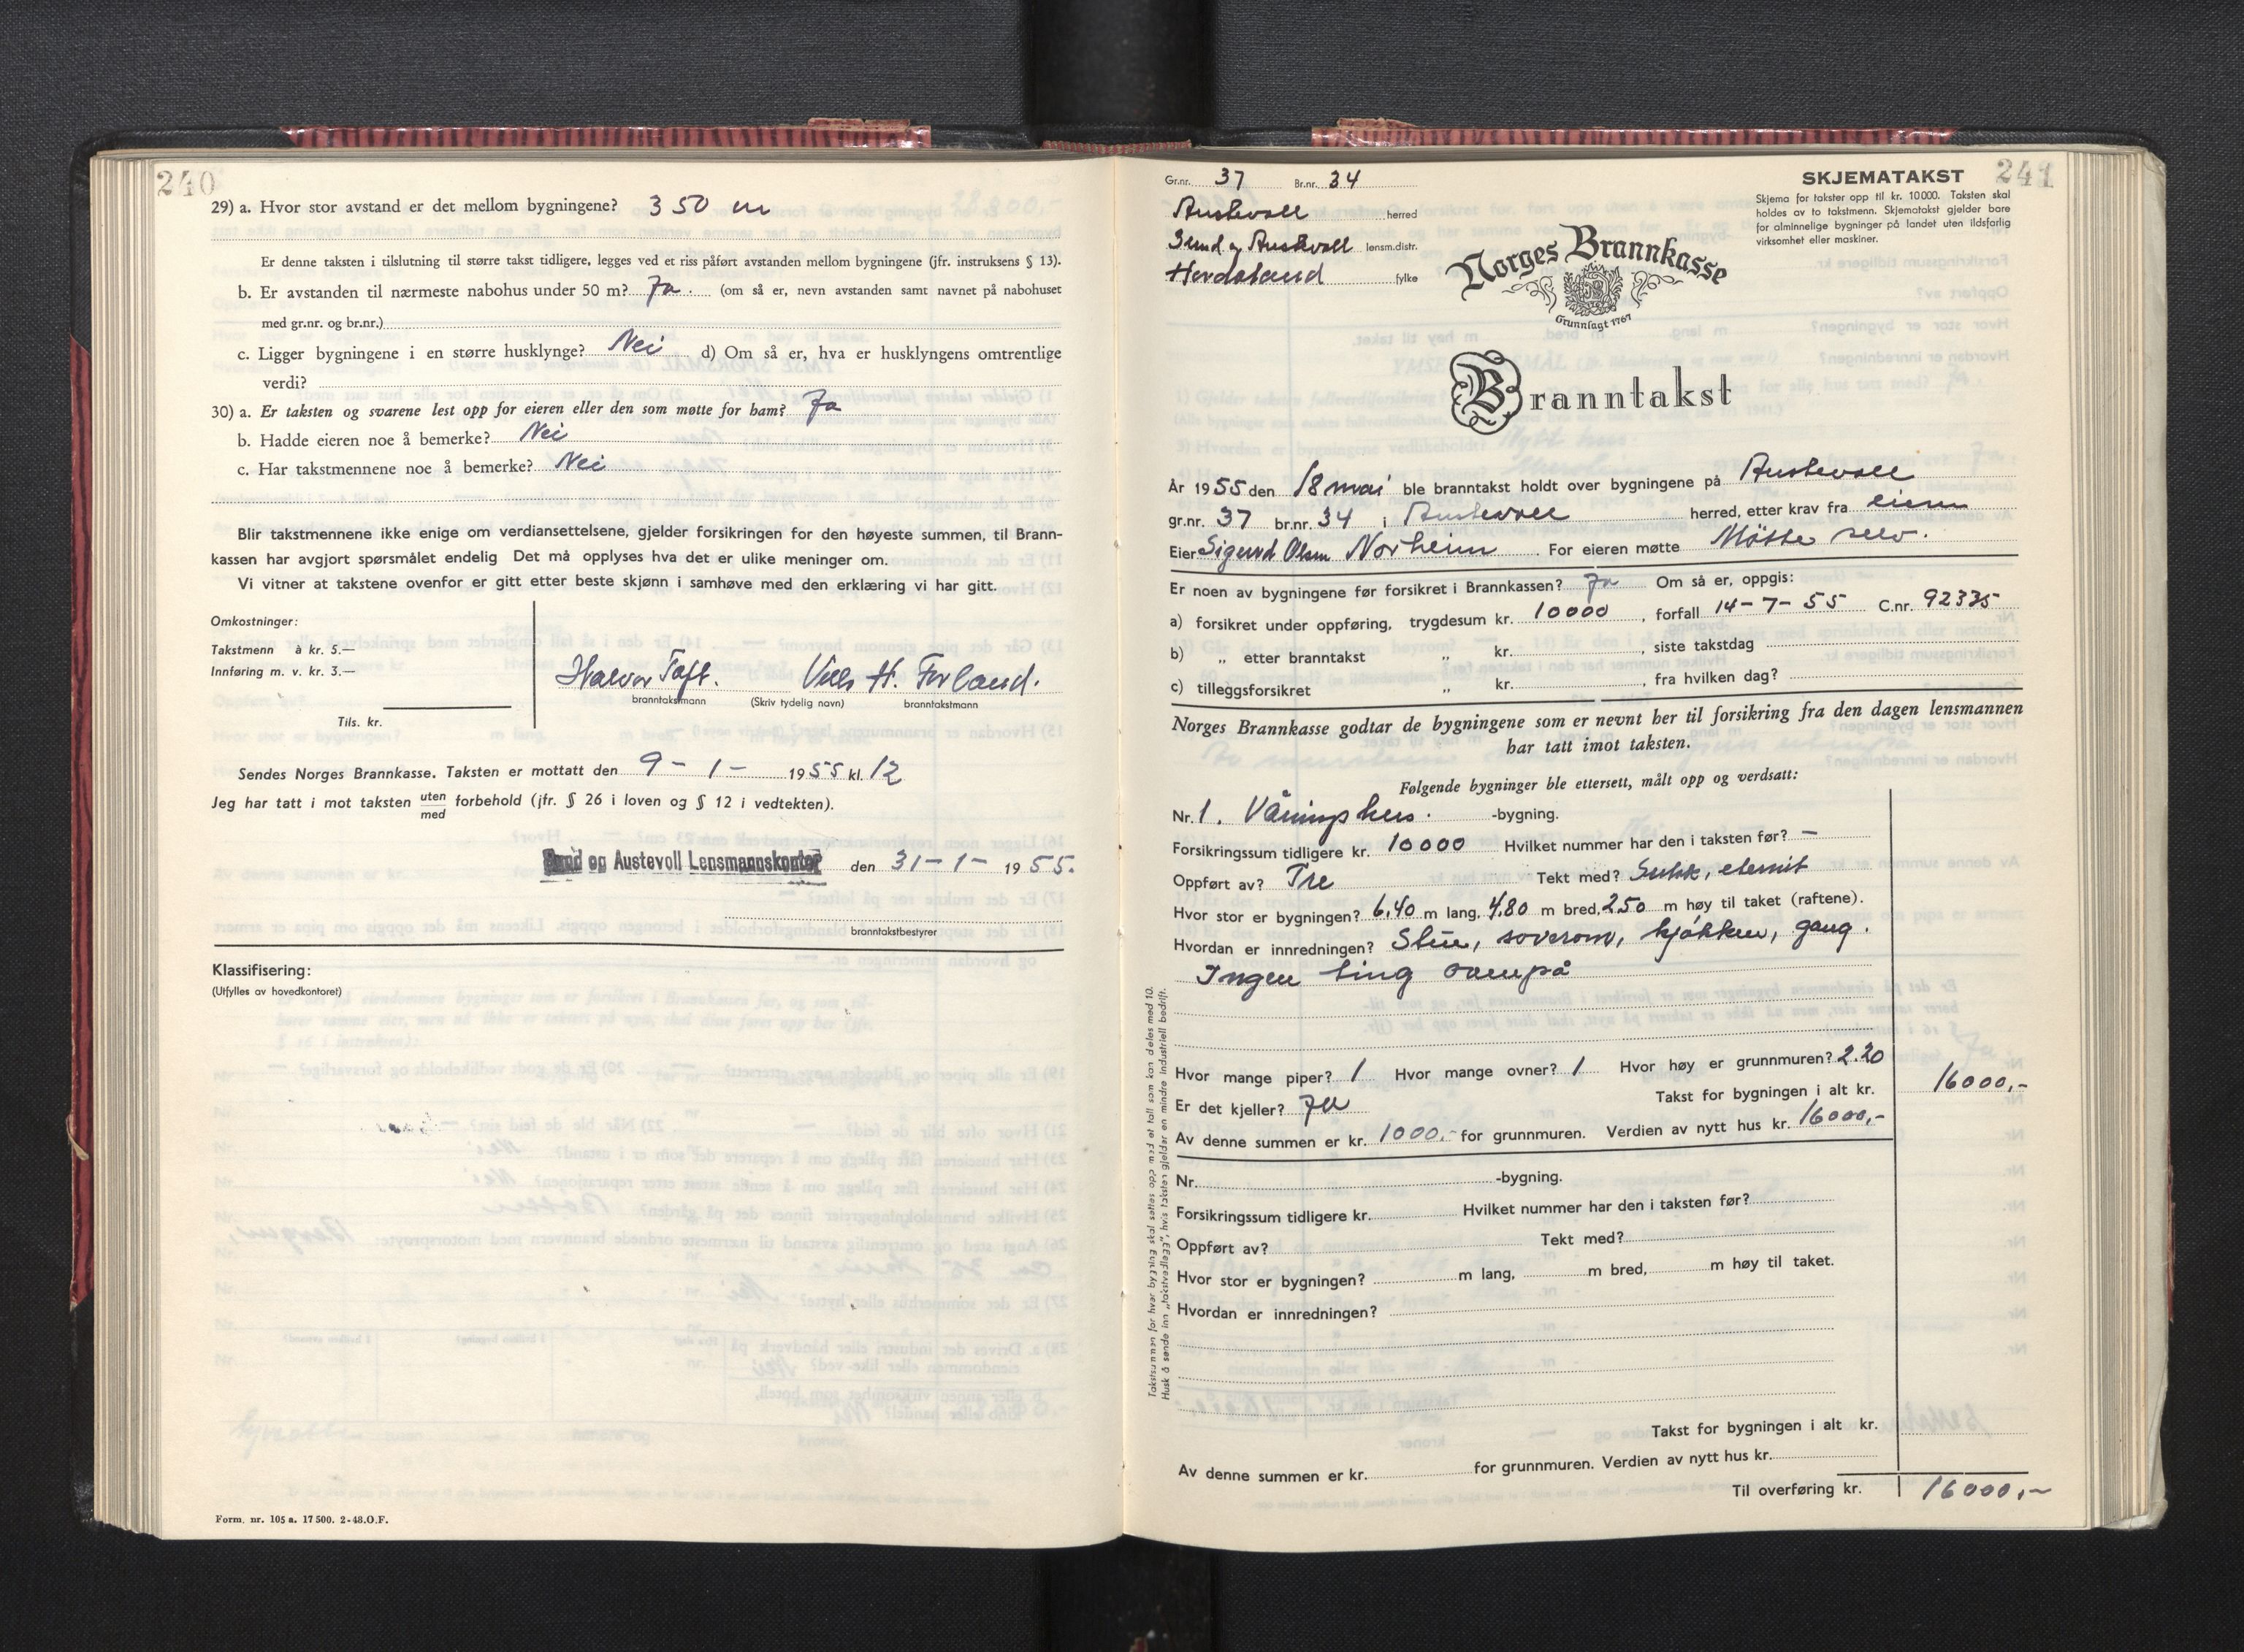 240
29) a. Hvor stor avstand er det mellom bygningene? 350 m
Er denne taksten i tilslutning til større takst tidligere, legges ved et riss påført avstanden mellom bygningene (jfr. instruksens § 13).
b. Er avstanden til nærmeste nabohus under 50 m? Ja. (om så er, nevn avstanden samt navnet på nabohuset
med gr.nr. og br.nr.)
c. Ligger bygningene i en større husklynge? Nei d) Om så er, hva er husklyngens omtrentlige
verdi?
30) a. Er taksten og svarene lest opp for eieren eller den som møtte for ham? Ja
b. Hadde eieren noe å bemerke? Nei
c. Har takstmennene noe å bemerke? Nei
Blir takstmennene ikke enige om verdiansettelsene, gjelder forsikringen for den høyeste summen, til Brann-
kassen har avgjort spørsmålet endelig Det må opplyses hva det er ulike meninger om.
Vi vitner at takstene ovenfor er gitt etter beste skjønn i samhøve med den erklæring vi har gitt.
Omkostninger:
Takstmenn à kr. 5.—
Innføring m. v. kr. 3.—
Tils. kr.
Halvor Toft. H. Forland.
branntakstmann (Skriv tydelig navn) branntakstmann
Sendes Norges Brannkasse. Taksten er mottatt den 9 - 1 - 1955 kl. 12
Jeg har tatt i mot taksten uten
med forbehold (jfr. § 26 i loven og § 12 i vedtekten).
Sund og Austevoll Lensmannskontor den 31 - 1 - 1955.
branntakstbestyrer
Klassifisering:
(Utfylles av hovedkontoret)
Form. nr. 105 a. 17 500. 2-48. O.F.
241
Gr.nr. 37 Br.nr. 34
Austevoll herred
Sund og Austevoll lensm.distr.
Hordaland fylke
SKJEMATAKST
Skjema for takster opp til kr. 10000. Taksten skal
holdes av to takstmenn. Skjematakst gjelder bare
for alminnelige bygninger på landet uten ildsfarlig
virksomhet eller maskiner.
Norges Brannkasse
Grunnlagt 1767
Branntakst
År 1955 den 18 mai ble branntakst holdt over bygningene på Austevoll
gr.nr. 37 br.nr. 34 i Austevoll herred, etter krav fra eieren
Eier Sigurd Olsen Norheim For eieren møtte Møtte selv.
Er noen av bygningene før forsikret i Brannkassen? Ja Om så er, oppgis:
a) forsikret under oppføring, trygdesum kr. 10000, forfall 14-7-55 C.nr. 92335
b) „ etter branntakst „ kr. , siste takstdag
c) tilleggsforsikret „ kr. , fra hvilken dag?
Norges Brannkasse godtar de bygningene som er nevnt her til forsikring fra den dagen lensmannen
har tatt imot taksten.
Følgende bygninger ble ettersett, målt opp og verdsatt:
Nr. 1. Våningshus. -bygning.
Forsikringssum tidligere kr. 10000 Hvilket nummer har den i taksten før? —
Oppført av? Tre Tekt med? Sutak, eternit
Hvor stor er bygningen? 6,40 m lang, 4,80 m bred, 2,50 m høy til taket (raftene).
Hvordan er innredningen? Stue, soverom, kjøkken, gang.
Ingen ting ovenpå
Hvor mange piper? 1 Hvor mange ovner? 1 Hvor høy er grunnmuren? 2.20
Er det kjeller? Ja Takst for bygningen i alt kr. 16000,-
Av denne summen er kr. 1000,- for grunnmuren. Verdien av nytt hus kr. 16000,-
Nr. -bygning.
Forsikringssum tidligere kr. Hvilket nummer har den i taksten før?
Oppført av? Tekt med?
Hvor stor er bygningen? m lang, m bred, m høy til taket.
Hvordan er innredningen?
Takst for bygningen i alt kr.
Av denne summen er kr. for grunnmuren. Verdien av nytt hus kr.
Til overføring kr. 16000,-
Takstsummen for hver bygning skal settes opp med et tall som kan deles med 10.
Husk å sende inn „takstvedlegg", hvis taksten gjelder en mindre industriell bedrift.